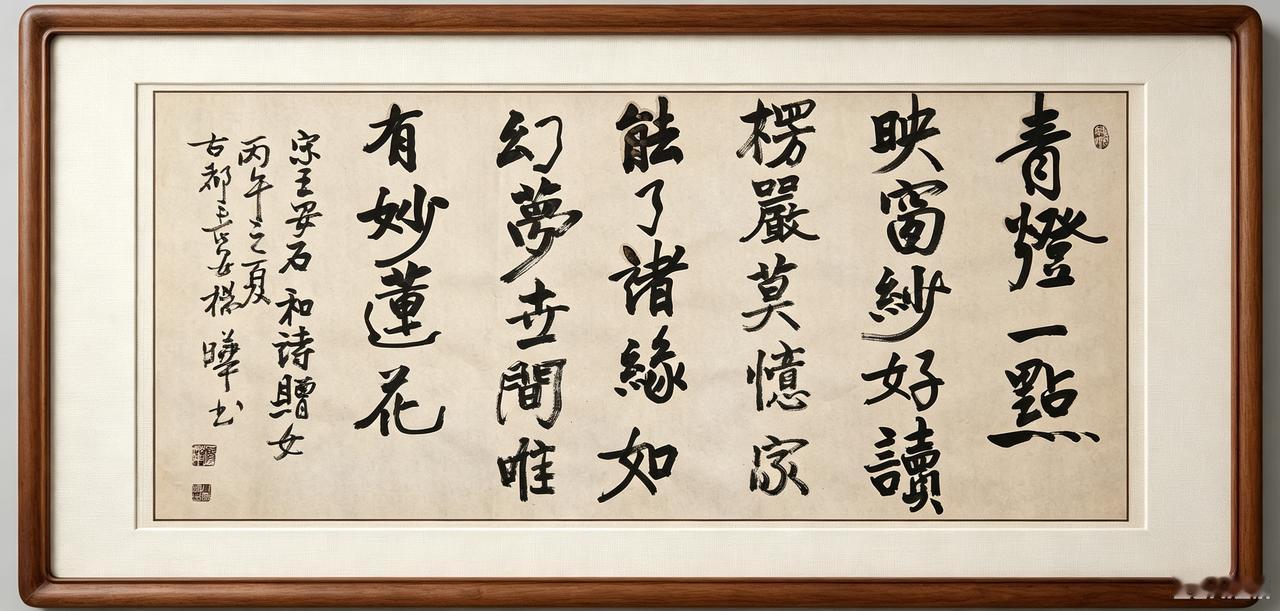 青燈一點
映窗紗好讀
楞嚴莫憶家
能了諸緣如
幻夢世間唯
有妙蓮花
宗王安石和詩贈女
丙午之夏
古都長安楊曄书